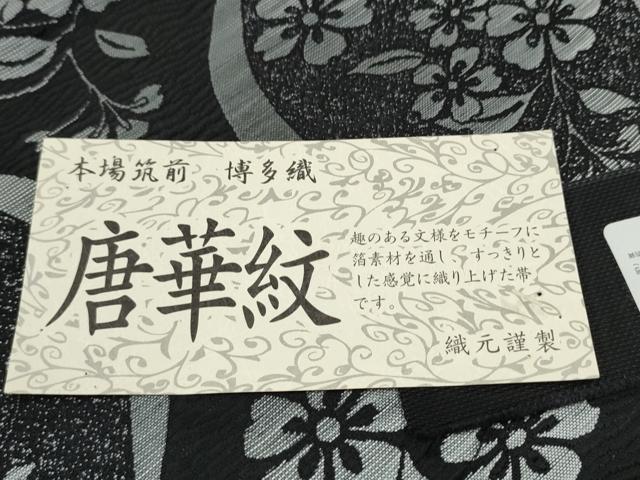 本場筑前　博多織
唐華紋
趣のある文様をモチーフに
箔素材を通し、すっきりと
した感覚に織り上げた帯
です。
織元謹製